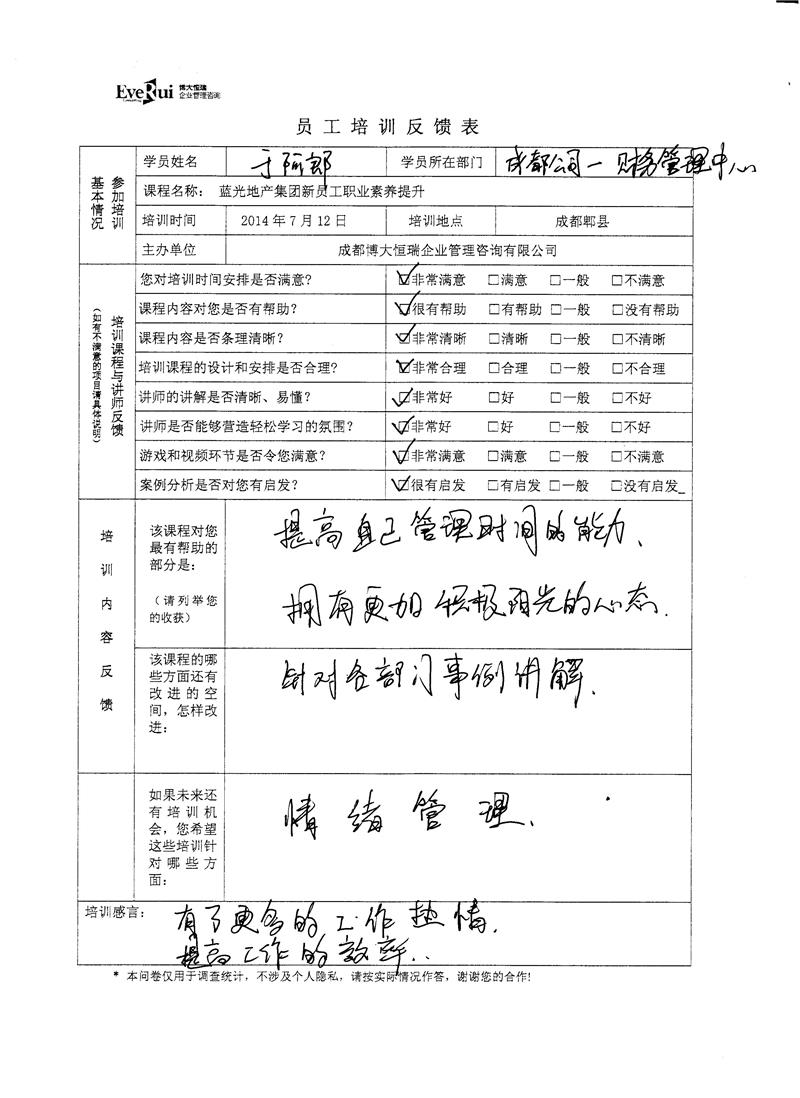 EveRui 博大恒瑞
企业管理咨询
员工培训反馈表
参加培训
基本情况
学员姓名 于阿郎 学员所在部门 成都公司-财务管理中心
课程名称： 蓝光地产集团新员工职业素养提升
培训时间 2014年7月12日 培训地点 成都郫县
主办单位 成都博大恒瑞企业管理咨询有限公司
培训课程与讲师反馈
（如有不满意的项目请具体说明）
您对培训时间安排是否满意? ☑非常满意 □满意 □一般 □不满意
课程内容对您是否有帮助？ ☑很有帮助 □有帮助 □一般 □没有帮助
课程内容是否条理清晰？ ☑非常清晰 □清晰 □一般 □不清晰
培训课程的设计和安排是否合理? ☑非常合理 □合理 □一般 □不合理
讲师的讲解是否清晰、易懂？ ☑非常好 □好 □一般 □不好
讲师是否能够营造轻松学习的氛围？ ☑非常好 □好 □一般 □不好
游戏和视频环节是否令您满意？ ☑非常满意 □满意 □一般 □不满意
案例分析是否对您有启发？ ☑很有启发 □有启发 □一般 □没有启发_
培训内容反馈
该课程对您
最有帮助的
部分是：
（请列举您
的收获）
提高自己管理时间的能力、
拥有更加积极阳光的心态.
该课程的哪
些方面还有
改进的空
间，怎样改
进：
针对各部门事例讲解.
如果未来还
有培训机
会，您希望
这些培训针
对哪些方
面：
情绪管理.
培训感言： 有了更多的工作热情.
提高工作的效率..
* 本问卷仅用于调查统计，不涉及个人隐私，请按实际情况作答，谢谢您的合作!